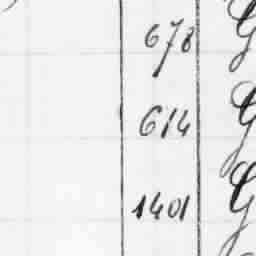 678 G
614 G
1401 G